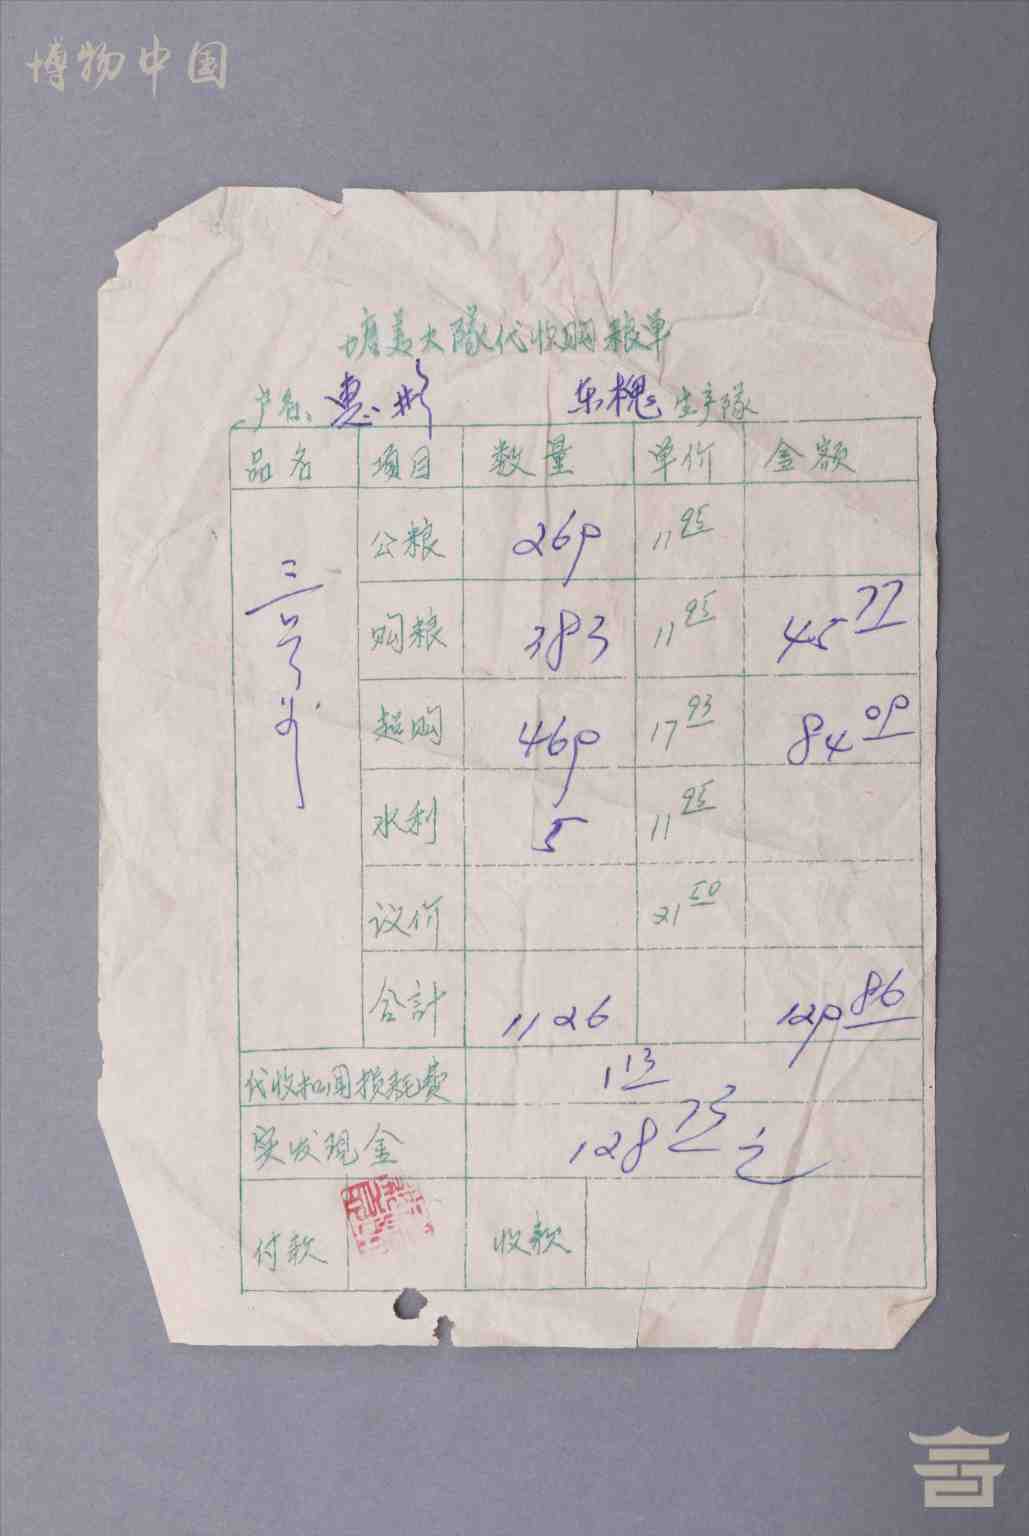 博物中国
塘美大队代收购粮单
户名: 惠彬 东槐生产队
品名 项目 数量 单价 金额
三号
公粮 269 11 95
购粮 383 11 95 45 77
超购 469 17 93 84 09
水利 5 11 95
议价 21 50
合計 1126 129 86
代收扣 损耗费 1 13
实发现金 128 73 元
付款 收款